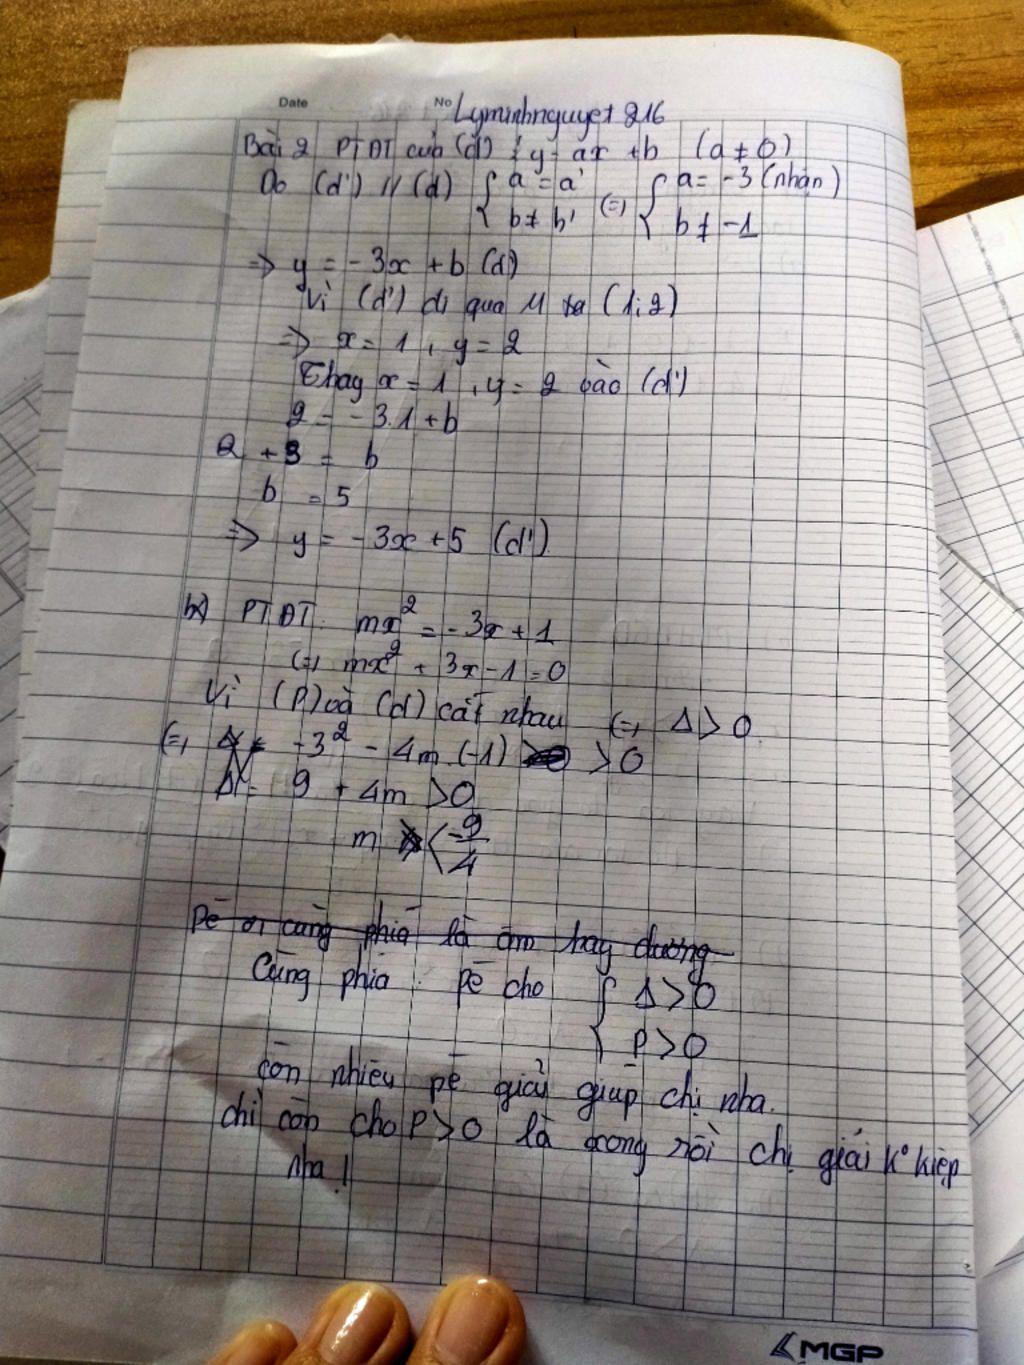 Date No Lyminhnguyet 216
Bài 2 PTĐT của (d) : y = ax + b (a ≠ 0)
Do (d') // (d) { a = a' (=) { a = -3 (nhận)
b ≠ b' b ≠ -1
=> y = - 3x + b (d')
Vì (d') đi qua M (1; 2)
=> x = 1 , y = 2
Thay x = 1 , y = 2 vào (d')
2 = - 3.1 + b
2 + 3 = b
b = 5
=> y = - 3x + 5 (d')
b) PTĐT: mx² = - 3x + 1
(=) mx² + 3x - 1 = 0
Vì (P) và (d) cắt nhau (=) Δ > 0
(=) -3² - 4m . (-1) > 0
Δ = 9 + 4m > 0
m < -9/4
Pé ơi cùng phía là âm hay dương
Cùng phía : pé cho { Δ > 0
P > 0
còn nhiêu pé giải giúp chị nha.
chỉ còn cho P > 0 là xong rồi chị giải k° kiẹp
nha !
MGP